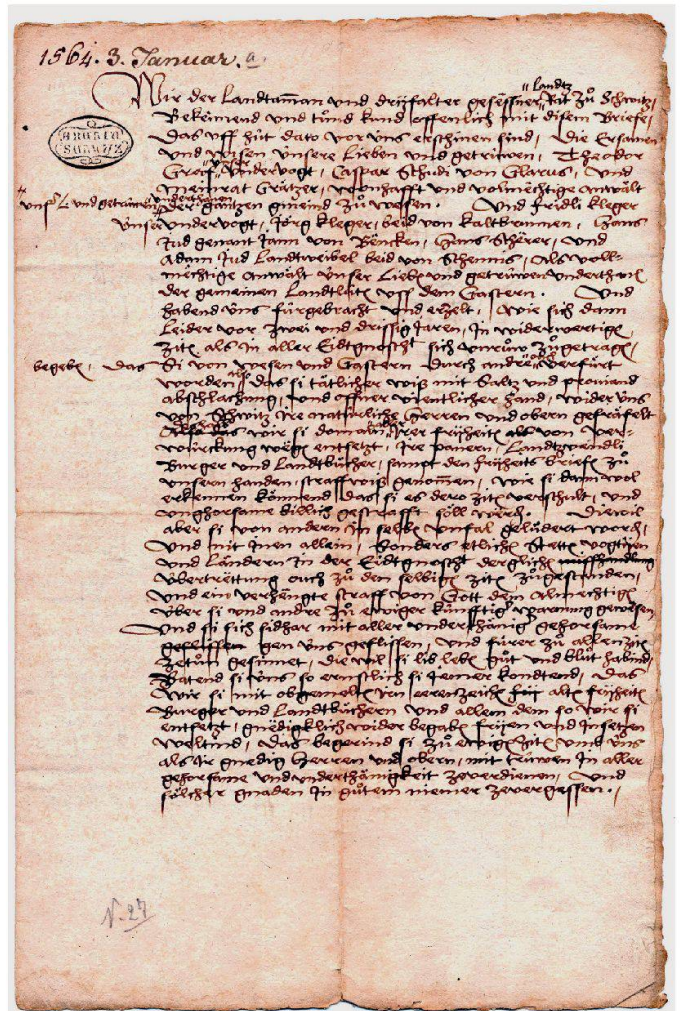 1564. 3. Januar. a.
Landtz
Wir der Landtaman und dryfalter gesessner Rat zů Schwitz,
Bekennend und tůnd kund offenlich mit disem Briefe,
Das uff hüt dato vor uns erschinen sind, Die Ersamen
und wysen unsere Lieben und getrüwen, Theodor
Graf, undervogt, Caspar Schudi von Glarus, und
Meinrat Grätzer, wonhafft und volmechtige anwält
der gantzen gmeind zů Wesen. Und Fridli Kleger
unser undervogt, Jörg Kleger, beid von Kaltbrunnen, Hans
Jud genant Jann von Bencken, Hans Scherer, und
Adam Jud Landtweibel beid von Schennis, als voll-
mechtige anwält unser Liebe und getrüwen
der gemeinen Landtlüten uss dem Gastern. Und
habend uns fürgebracht und erzelt, wie sich dann
Leider vor zwei und drissig Jaren, In widerwertige
zite als in aller Eidtgnoscht sich unrůw zůgetragen,
begeben, das Si von Wesen und Gastern durch andre verfürt
worden, das si tätlicher wiss mit Saltz und proviand
abschlachung, und offner vientlicher hand, wider uns
von Schwitz Ire natürliche Herren und obern gefräfelt
das wir si domaln Irer fryheiten als von ver-
würckung wegen entsetzt, Ire panern, Landtwendli
Burger und Landtbücher, sampt den fryheits briefen zů
unsern handen, straffwiss genomen, wie si dann wol
erkennen könnend das si es dero zite verschult, und
unghorsame billich gestrafft söll werden. Diewil
aber si von andern in selben unfal geludert worden,
und mit inen allein, sonders etlichen Stetten vogtyen
und Ländern in der Eidtgnoscht derglichen
übertrettung ouch zů den selbigen ziten zůgestanden,
und ein verhengte straff von Gott dem almechtigen
über si und andre zů ewiger künfftiger warnung gewesen
Und si sich sidhar mit aller underthäniger gehorsame
gen uns geflissen, und fürer zů allen ziten
zetůn gesinnet, diewil si lib leben gůt und blůt habind,
Batend si uns so ernstlich si iemer kondtend, das
wir si mit obgemelten eerenzeichen alten fryheiten
Burger und Landtbüchern und allem dem so wir si
entsetzt, gnedigklich wider begaben fryen und insetzen
weltind, das begerind si zů ewigen ziten umb uns
als Ir gnedig Herren und obern, mit trüwen in aller
gehorsame und underthänigkeit zeverdienen, Und
sölcher gnaden In gůtem niemer zevergessen.
N. 27